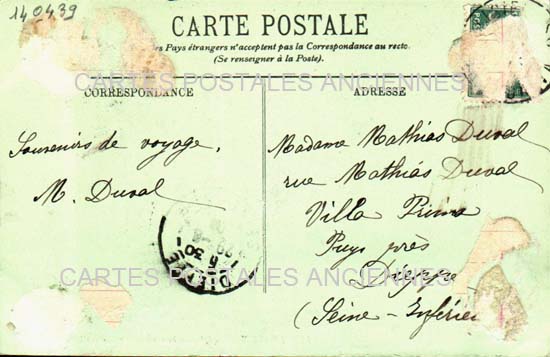 140439
CARTE POSTALE
es Pays étrangers n'acceptent pas la Correspondance au recto.
(Se renseigner à la Poste).
CARTES POSTALES ANCIENNES
CORRESPONDANCE
ADRESSE
Souvenirs de voyage.
M. Duval
Madame Mathias Duval
rue Mathias Duval
Villa
Puys près
Dieppe
(Seine-Inférieu
DIEPPE
CARTES POSTALES ANCIENNES